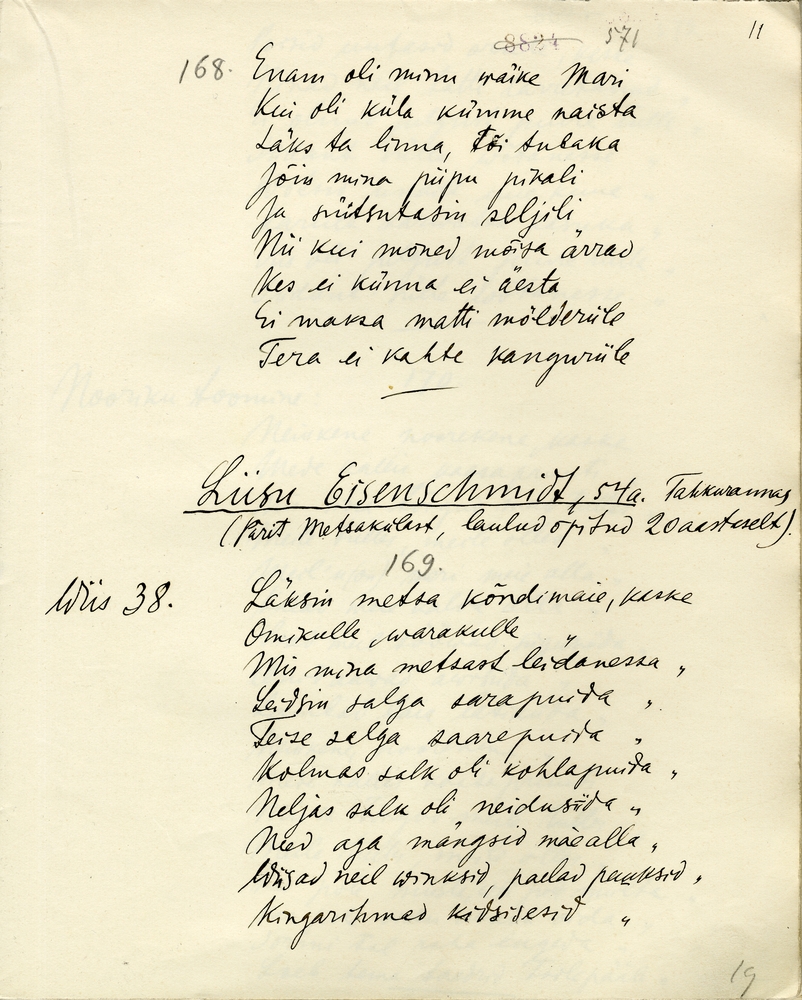 8824 571 11
168. Enam oli minu wäike Mari
Kui oli küla kümme naista
Läks ta linna, tõi tubaka
Jõin mina piipu pikali
Ja süitsutasin seljili
Nii kui mõned mõisa ärrad
Kes ei künna ei äesta
Ei maksa matti mölderille
Tera ei kahte kangurille
Liisu Eisenschmidt, 54a. Tahkurannas
(Pärit Metsakülast, laulud õpitud 20 aastaselt).
169.
Wiis 38. Läksin metsa kõndimaie, kaske
Omikulle, warakulle "
Mis mina metsast leidanessa "
Leidsin salga sarapuida "
Teise salga saarepuida "
Kolmas salk oli kohlapuida "
Neljas salk oli neidusida "
Need aga mängsid mäealla "
Wiisad neil winksid, paelad pauksid "
Kingarihmad kidsisesid "
19